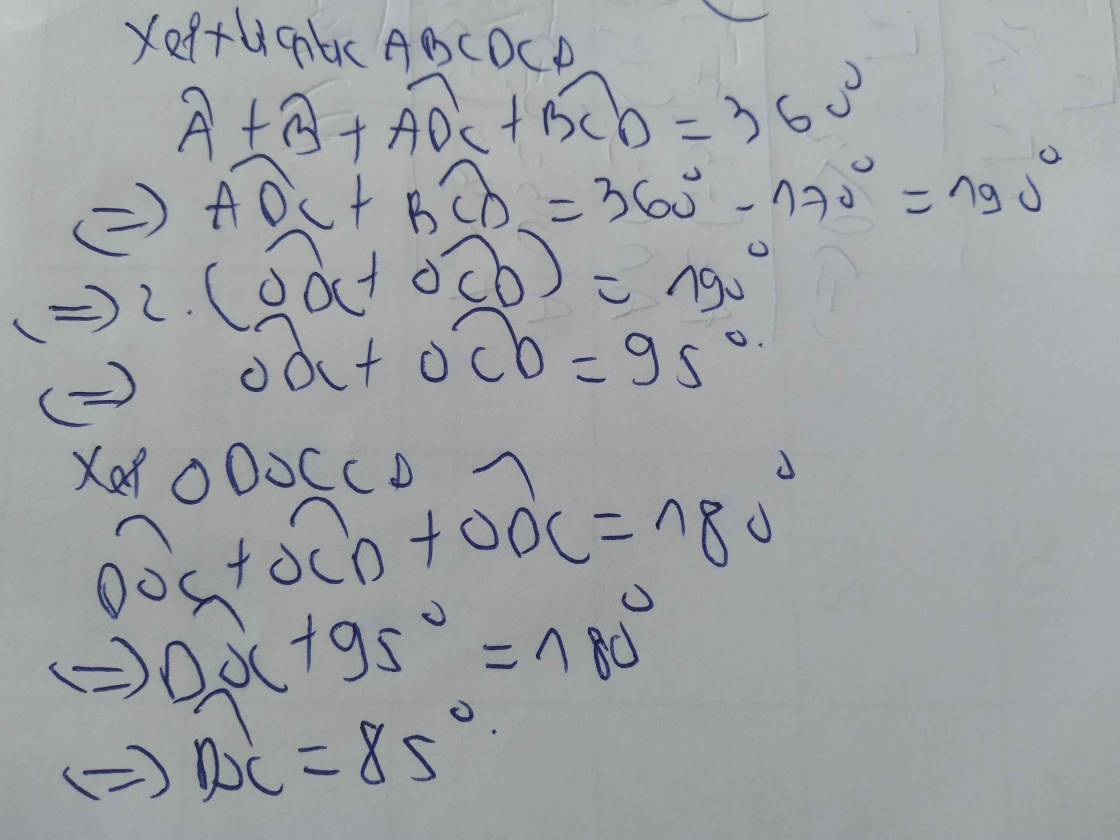 Xét tứ giác ABCDCD
Â + B̂ + ADC + BCD = 360°
<=> ADC + BCD = 360° - 170° = 190°
<=> 2.(ODC + OCD) = 190°
<=> ODC + OCD = 95°.
Xét ODOCCD
DOC + OCD + ODC = 180°
<=> DOC + 95° = 180°
<=> DOC = 85°.